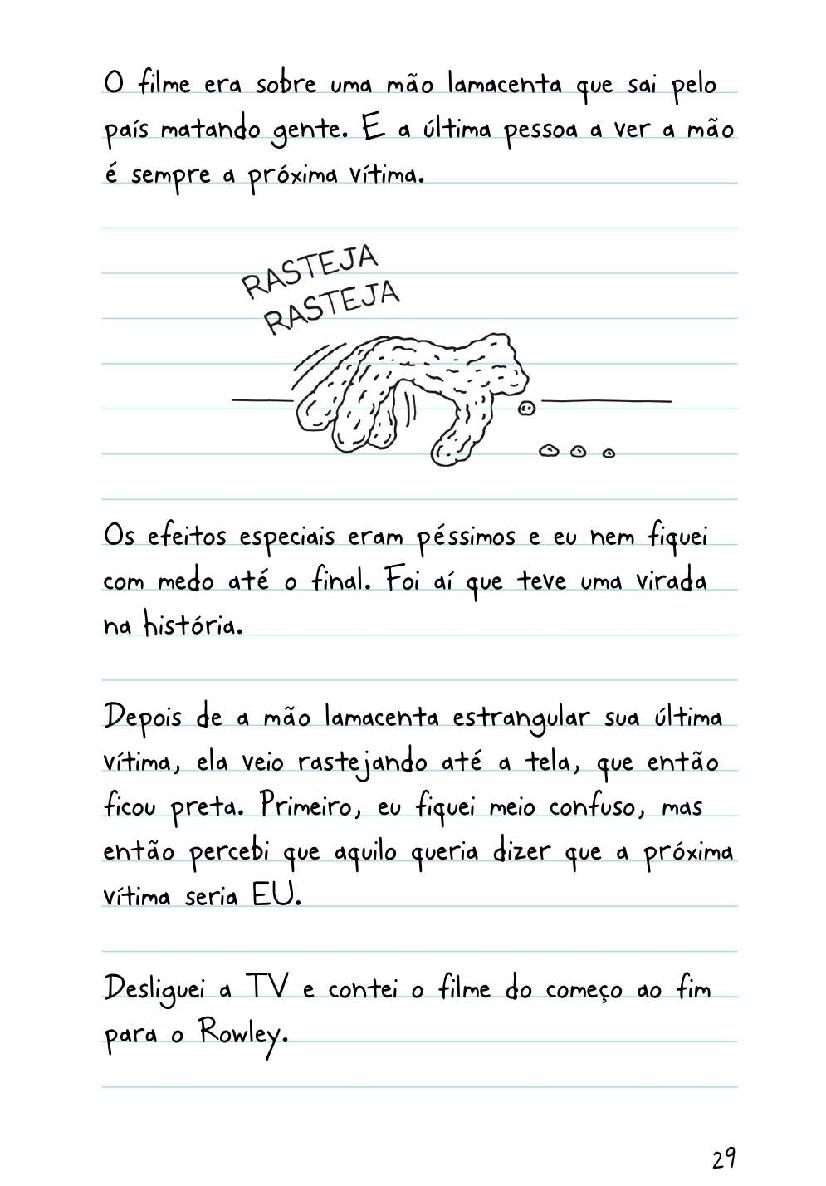 O filme era sobre uma mão lamacenta que sai pelo
país matando gente. E a última pessoa a ver a mão
é sempre a próxima vítima.
RASTEJA
RASTEJA
Os efeitos especiais eram péssimos e eu nem fiquei
com medo até o final. Foi aí que teve uma virada
na história.
Depois de a mão lamacenta estrangular sua última
vítima, ela veio rastejando até a tela, que então
ficou preta. Primeiro, eu fiquei meio confuso, mas
então percebi que aquilo queria dizer que a próxima
vítima seria EU.
Desliguei a TV e contei o filme do começo ao fim
para o Rowley.
29